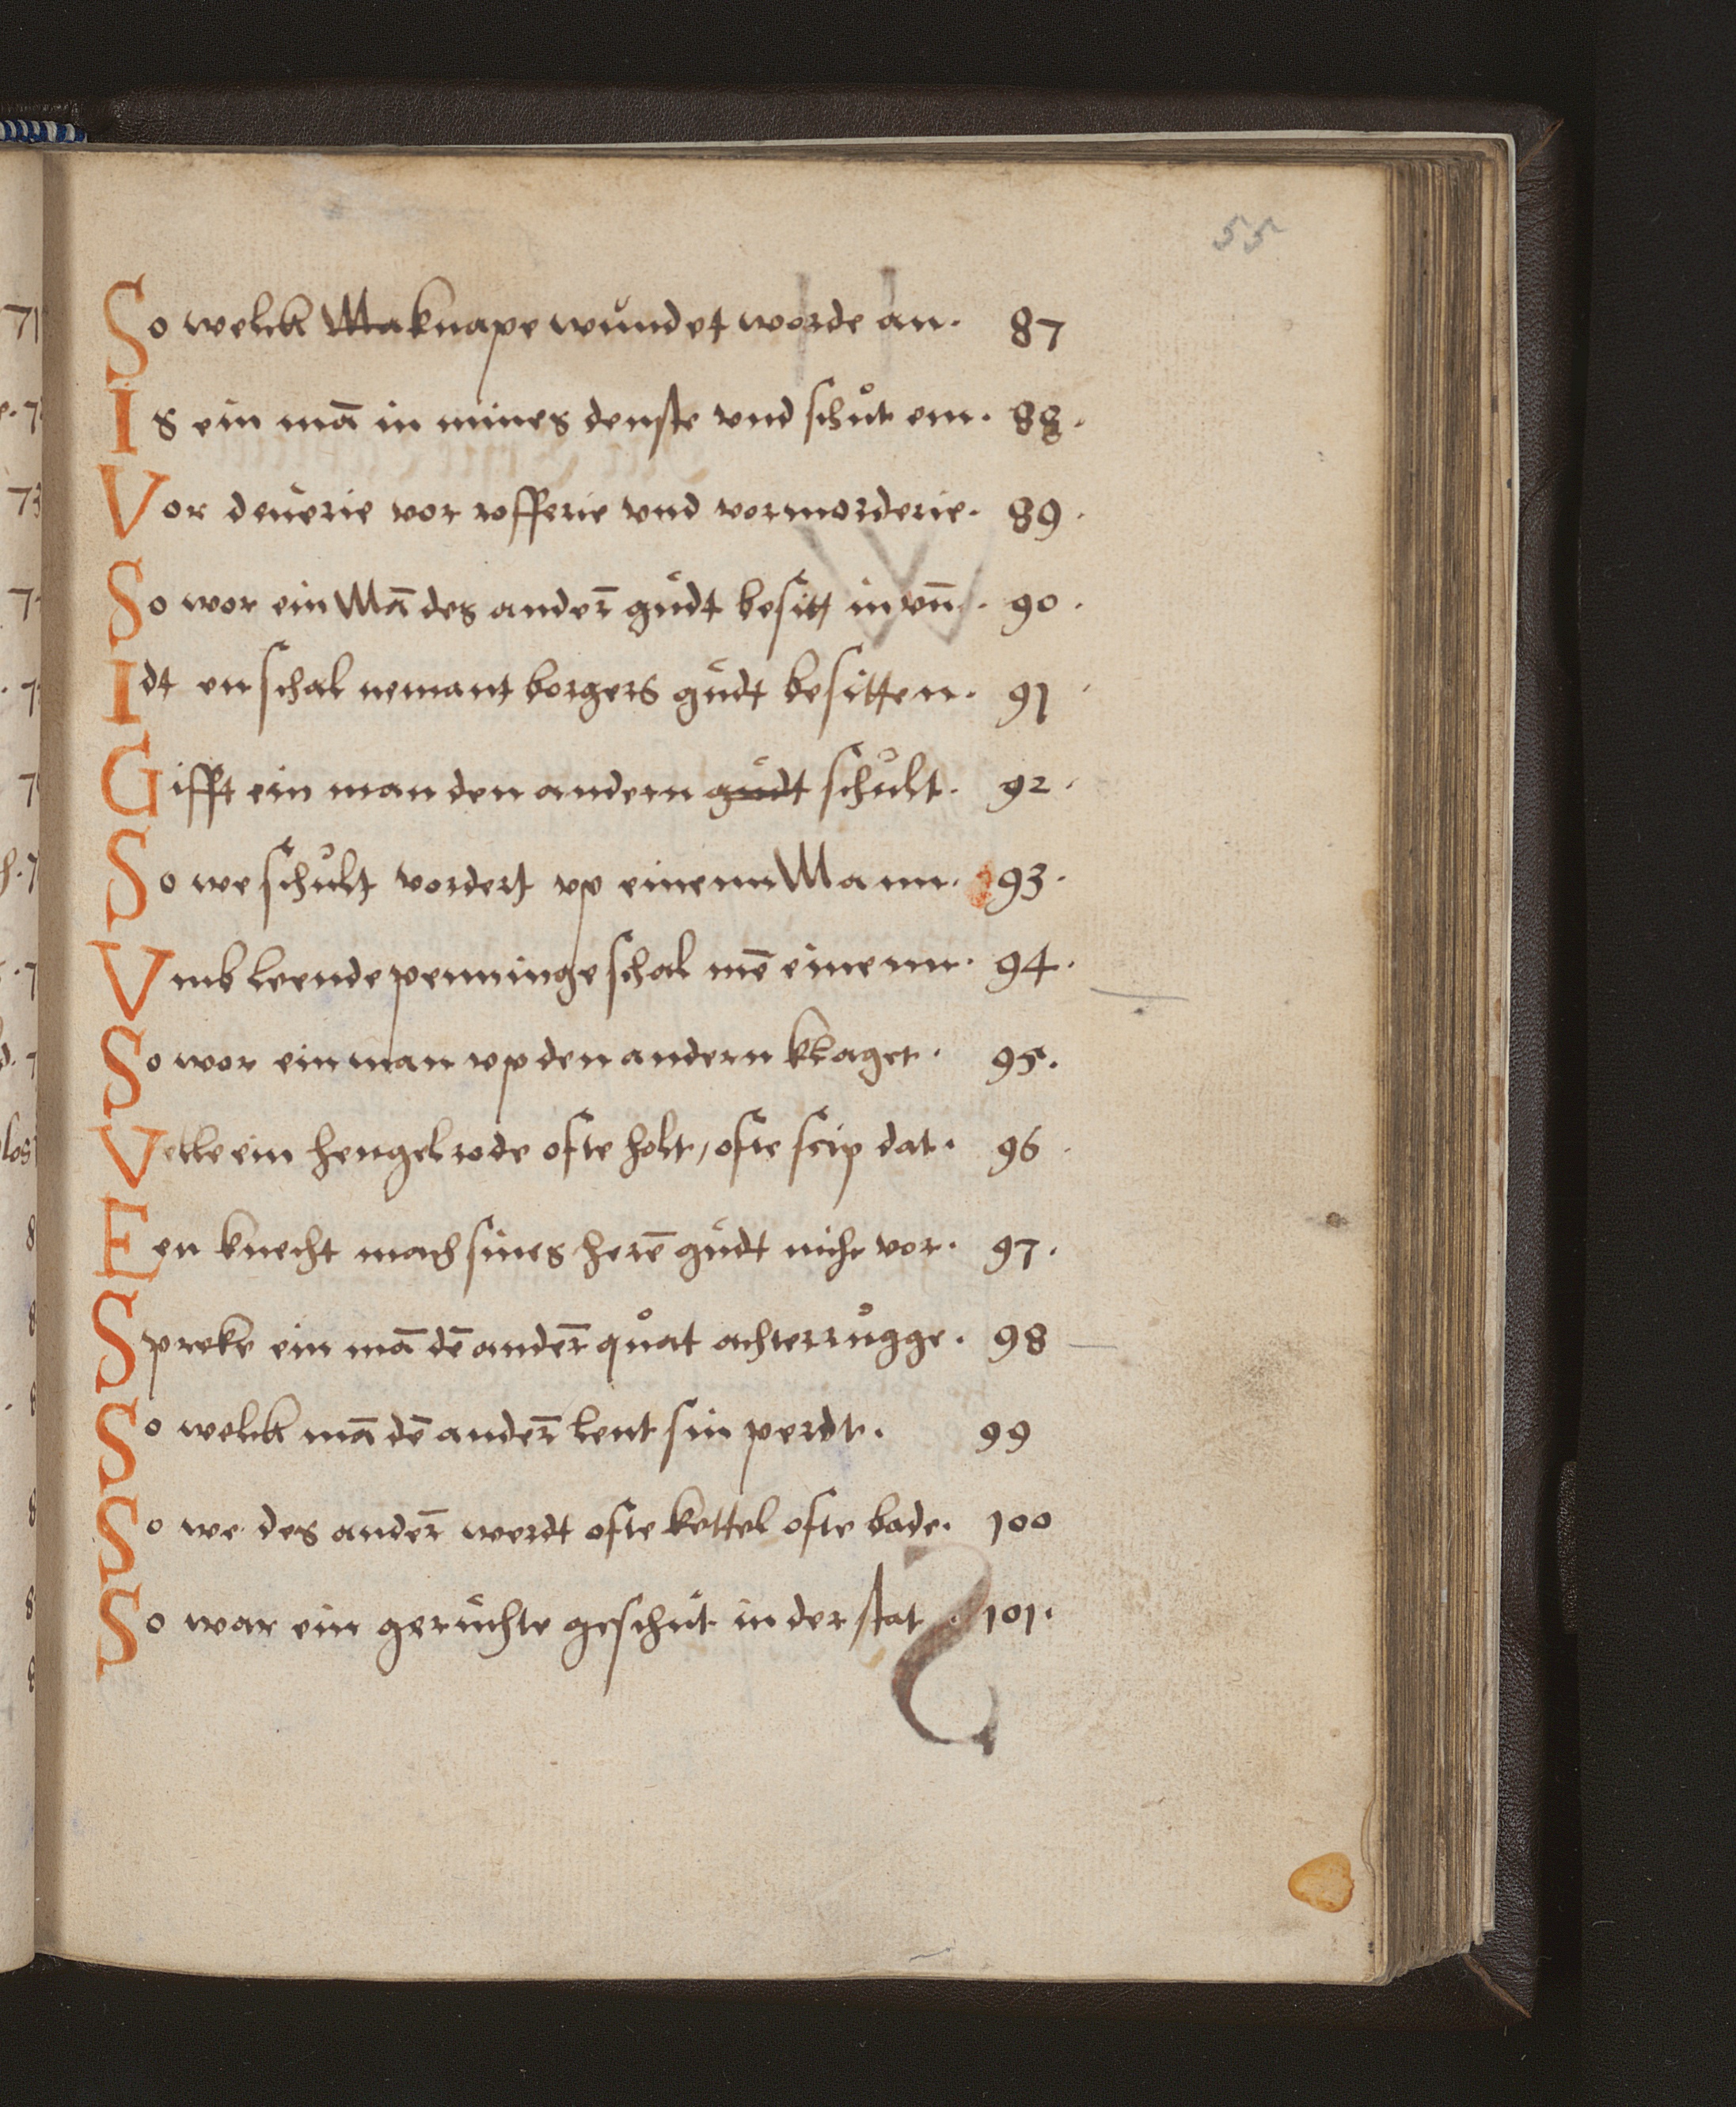 55
So welck Ma knape wundet worde an. 87
Is ein mā in mines denste vnd schůt em. 88.
Vor deuerie vor rofferie vnd vormorderie. 89.
So wor ein Mā des ander̄ gudt besitt in vn̄. 90.
Idt en schal nemant borgers gudt besitten. 91
Gifft ein man den andern gudt schůlt. 92.
So we schůlt vordert vp einenn Mann. 93.
Vmb leende penninge schal mē einenn. 94.
So wor ein man vp den andern klaget. 95.
Velle ein hengelrode ofte holt, ofte scip dat. 96
Een knecht mach sines herē gudt nicht vor. 97.
Spreke ein mā dē ander̄ quåt achterrůgge. 98
So welck mā dē ander̄ lent sin perdt. 99
So we des ander̄ werdt ofte kettel ofte bade. 100
So war ein geruchte geschut in der stat. 101.